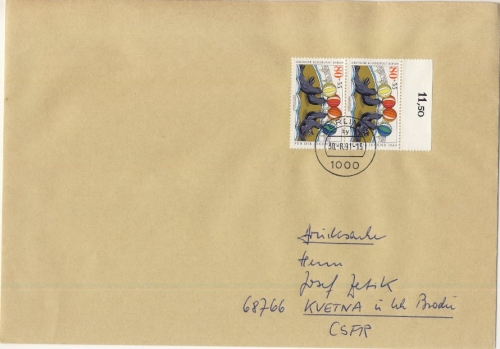 80+35 80+35
11,50
BERLIN
30.-8.91-15
1000
Drucksache
Herrn
Josef Zetik
68766 KVETNA u Uh Brodu
CSFR